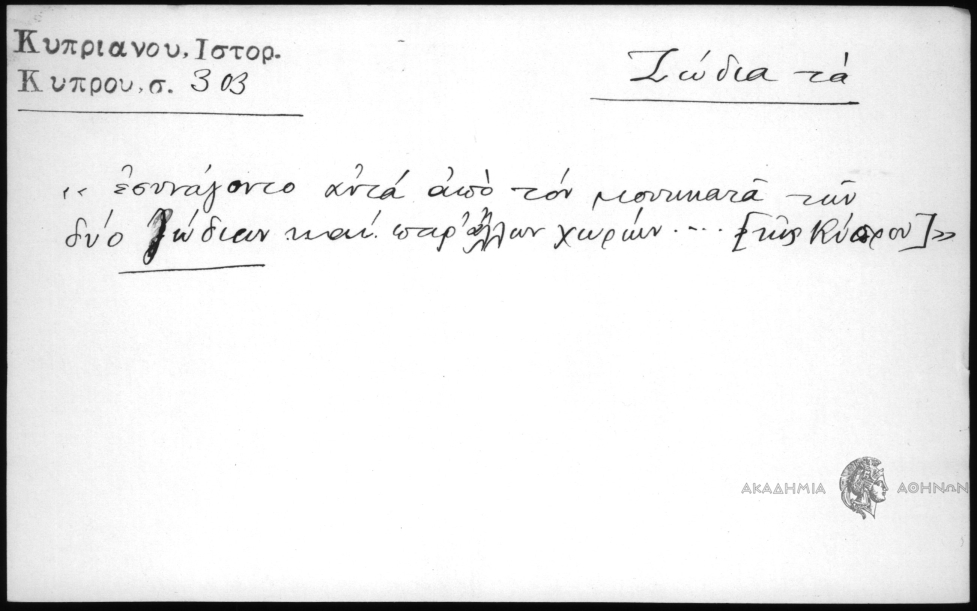 Κυπριανου, Ιστορ.
Κυπρου, σ. 303
Ζώδια τά
“ ἐσυνάγοντο αὐτά ἀπό τόν μουκατᾶ τῶν
δύο Ζώδιων καί παρ' ἄλλων χωρίων .... [τῆς Κύπρου]»
ΑΚΑΔΗΜΙΑ ΑΘΗΝΩΝ